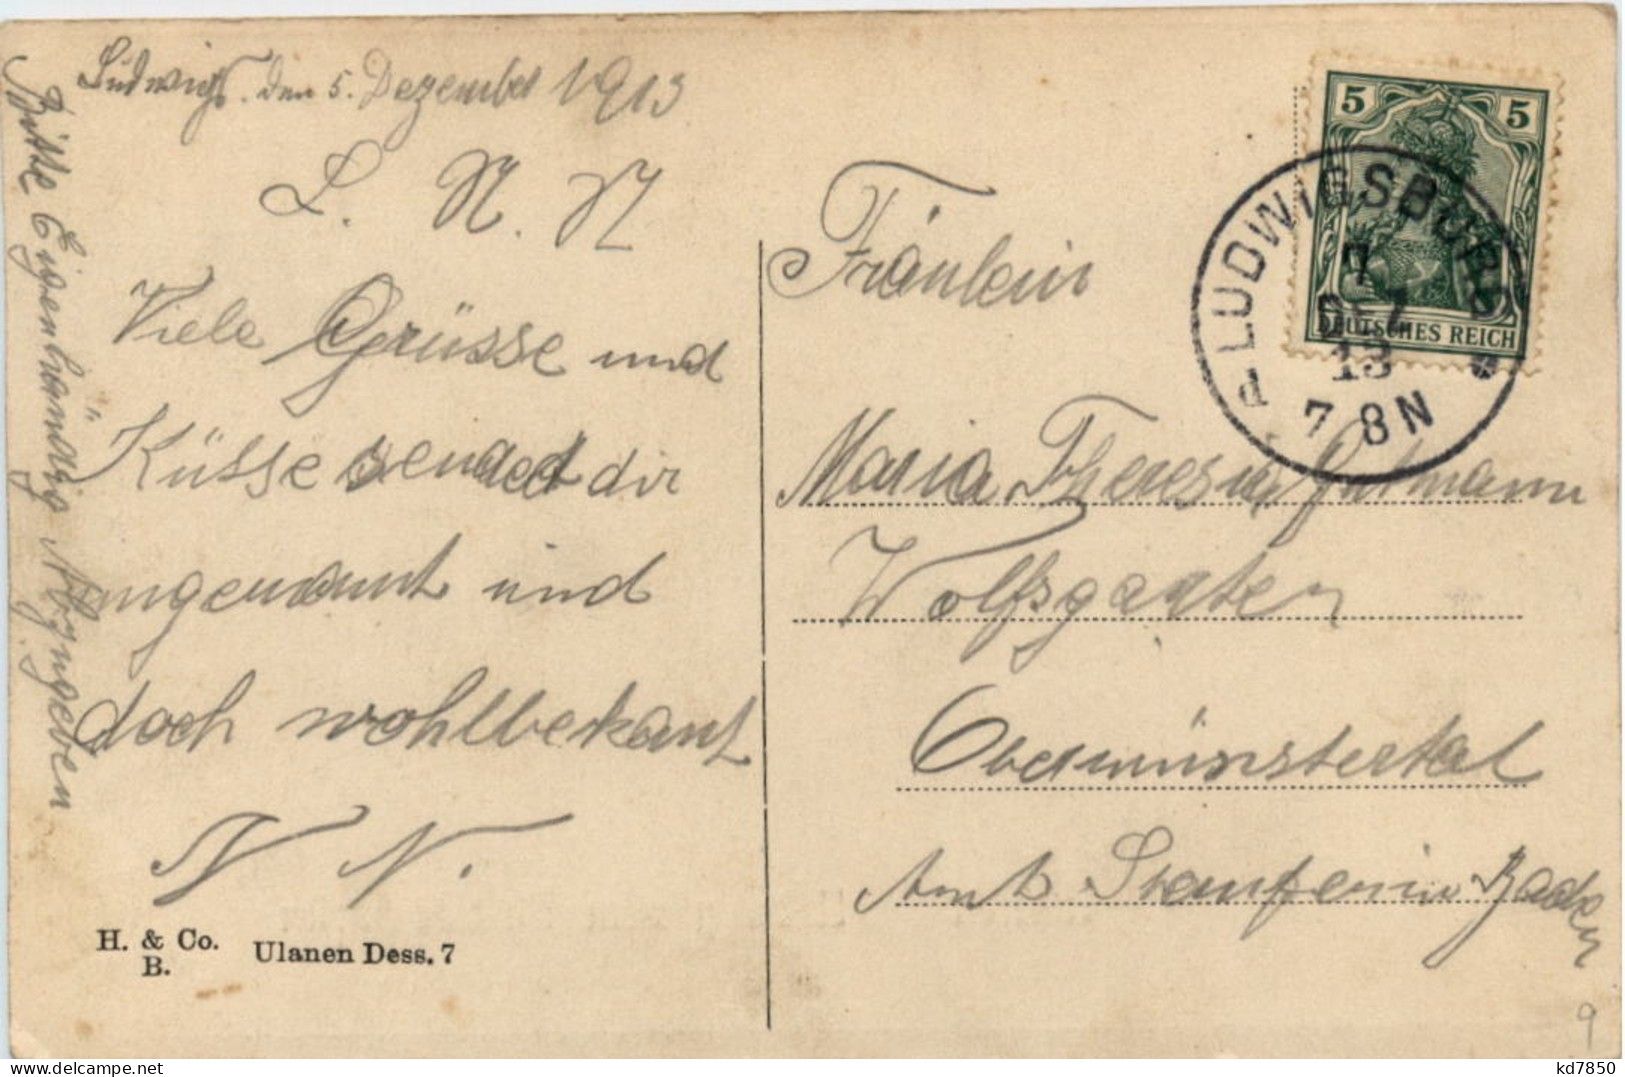 Ludwigs. den 5. Dezember 1913
L. N. N
Viele Grüsse und
Küsse sendet dir
ungenannt und
doch wohlbekannt
N N.
Bitte Eigenhändig Abzugeben
H. & Co.
B.
Ulanen Dess. 7
Fräulein
Maria Theresia Gutmann
Wolfsgarten
Obermünstertal
Amt Staufen in Baden
5 5
DEUTSCHES REICH
LUDWIGSBURG
7
13
7 8 N
9
kd7850